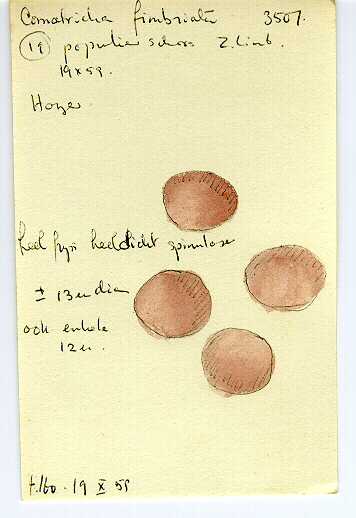 Comatricha fimbriata 3507.
(19) populier schors Z. Limb.
19 x 59.
Hoyer
heel fijn heel dicht spinulose
± 13 u dia
ook enkele
12 u.
19 X 59